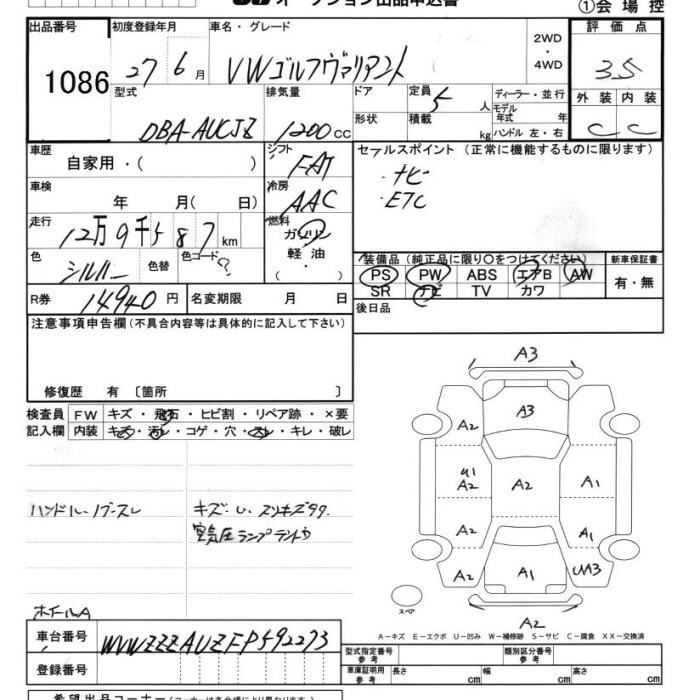 オークション出品申込書
①会場控
出品番号
1086
初度登録年月
27 6月
車名・グレード
VWゴルフヴァリアント
2WD
・
4WD
評価点
3.5
型式
DBA-AUCJZ
排気量
1200cc
ドア
形状
定員
5人
積載
kg
ディーラー・並行
モデル年式 年
ハンドル 左・右
外装 内装
C C
車歴
自家用・( )
シフト
FAT
セールスポイント (正常に機能するものに限ります)
・ナビ
・ETC
車検
年 月( 日)
冷房
AAC
走行
12万9千587km
燃料
ガソリン
軽油
( )
色
シルバー
色替
色コード
?
装備品(純正品に限り○をつけてください)
PS PW ABS エアB AW
SR ナビ TV カワ
新車保証書
有・無
R券
14940円
名変期限 月 日
後日品
注意事項申告欄(不具合内容等は具体的に記入して下さい)
修復歴 有 〔箇所 〕
検査員記入欄
FW キズ・飛石・ヒビ割・リペア跡・×要
内装 キズ・汚れ・コゲ・穴・スレ・キレ・破レ
ハンドル・ノブスレ
キズ・U・スリキズ多々
空気圧ランプテントウ
ホイールA
A3
A3
A2
U1
A2
A2
A1
A2
A1
A2
A1
UA3
A2
スペア
A-キズ E-エクボ U-凹み W-補修跡 S-サビ C-腐食 XX-交換済
車台番号
WVWZZZAUZFP592273
登録番号
型式指定番号
参考
類別区分番号
参考
車庫証明用
参考
長さ cm
幅 cm
高さ cm
希望出品コーナー